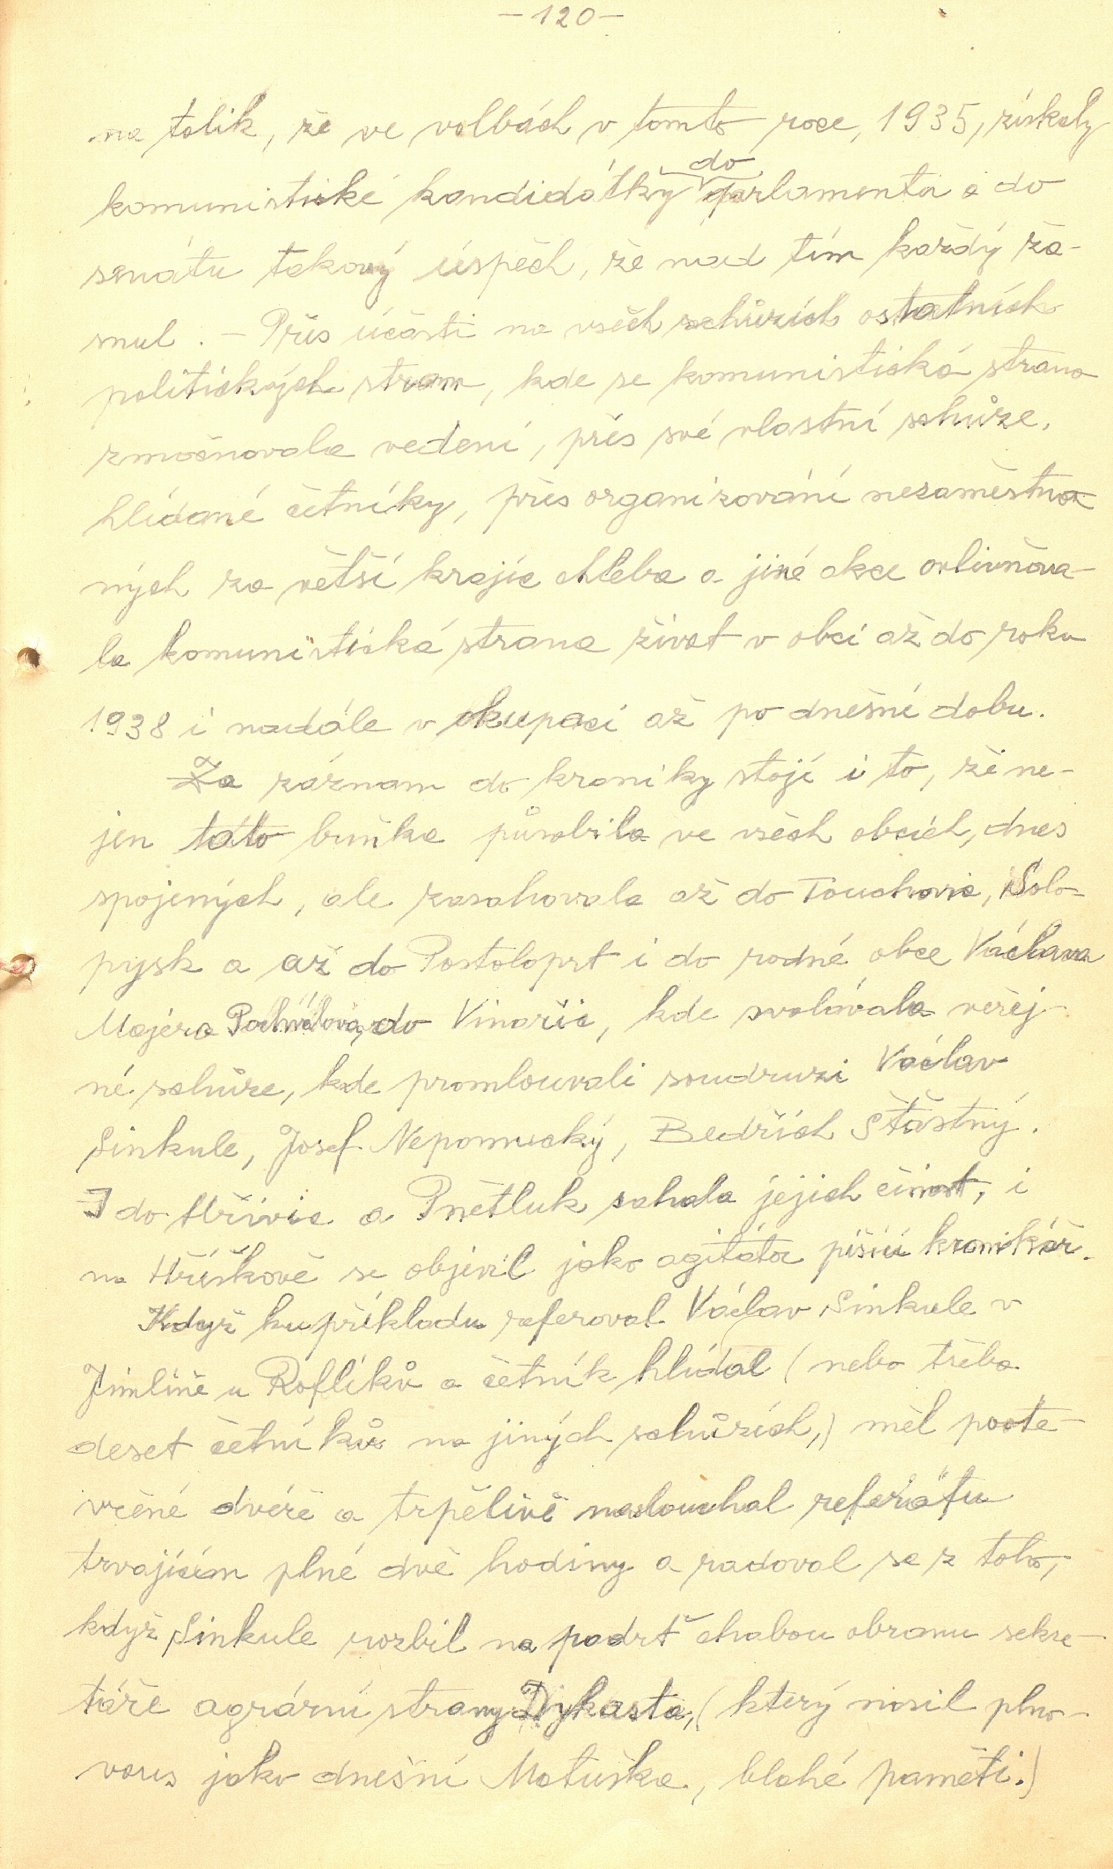 -120-
na tolik, že ve volbách v tomto roce, 1935, získaly
komunistické kandidátky do parlamenta a do
senátu takový úspěch, že nad tím každý ža-
snul. - Přes účasti na všech schůzích ostatních
politických stran, kde se komunistická strana
zmocňovala vedení, přes své vlastní schůze,
hlídané četníky, přes organizování nezaměstna-
ných za větší krajíc chleba a jiné akce ovlivňova-
la komunistická strana život v obci až do roku
1938 i nadále v okupaci až po dnešní dobu.
Za záznam do kroniky stojí i to, že ne-
jen tato buňka působila ve všech obcích, dnes
spojených, ale zasahovala až do Touchovic, Solo-
pysk a až do Postoloprt i do rodné obce Václava
Majera Pochválova, do Vinařic, kde svolávala veřej-
né schůze, kde promlouvali soudruzi Václav
Sinkule, Josef Nepomucký, Bedřich Šťastný.
I do Hřivic a Pnětluk sahala jejich činnost, i
na Hříškově se objevil jako agitátor píšící kronikář.
Když ku příkladu referoval Václav Sinkule v
Jimlíně u Roflíků a četník hlídal (nebo třeba
deset četníků na jiných schůzích,) měl poote-
vřené dvéře a trpělivě naslouchal referátu
trvajícím plné dvě hodiny a radoval se z toho,
když Sinkule rozbil na padrť chabou obranu sekre-
táře agrární strany Dykasta, (který nosil plno-
vous jako dnešní Matuška, blahé paměti.)